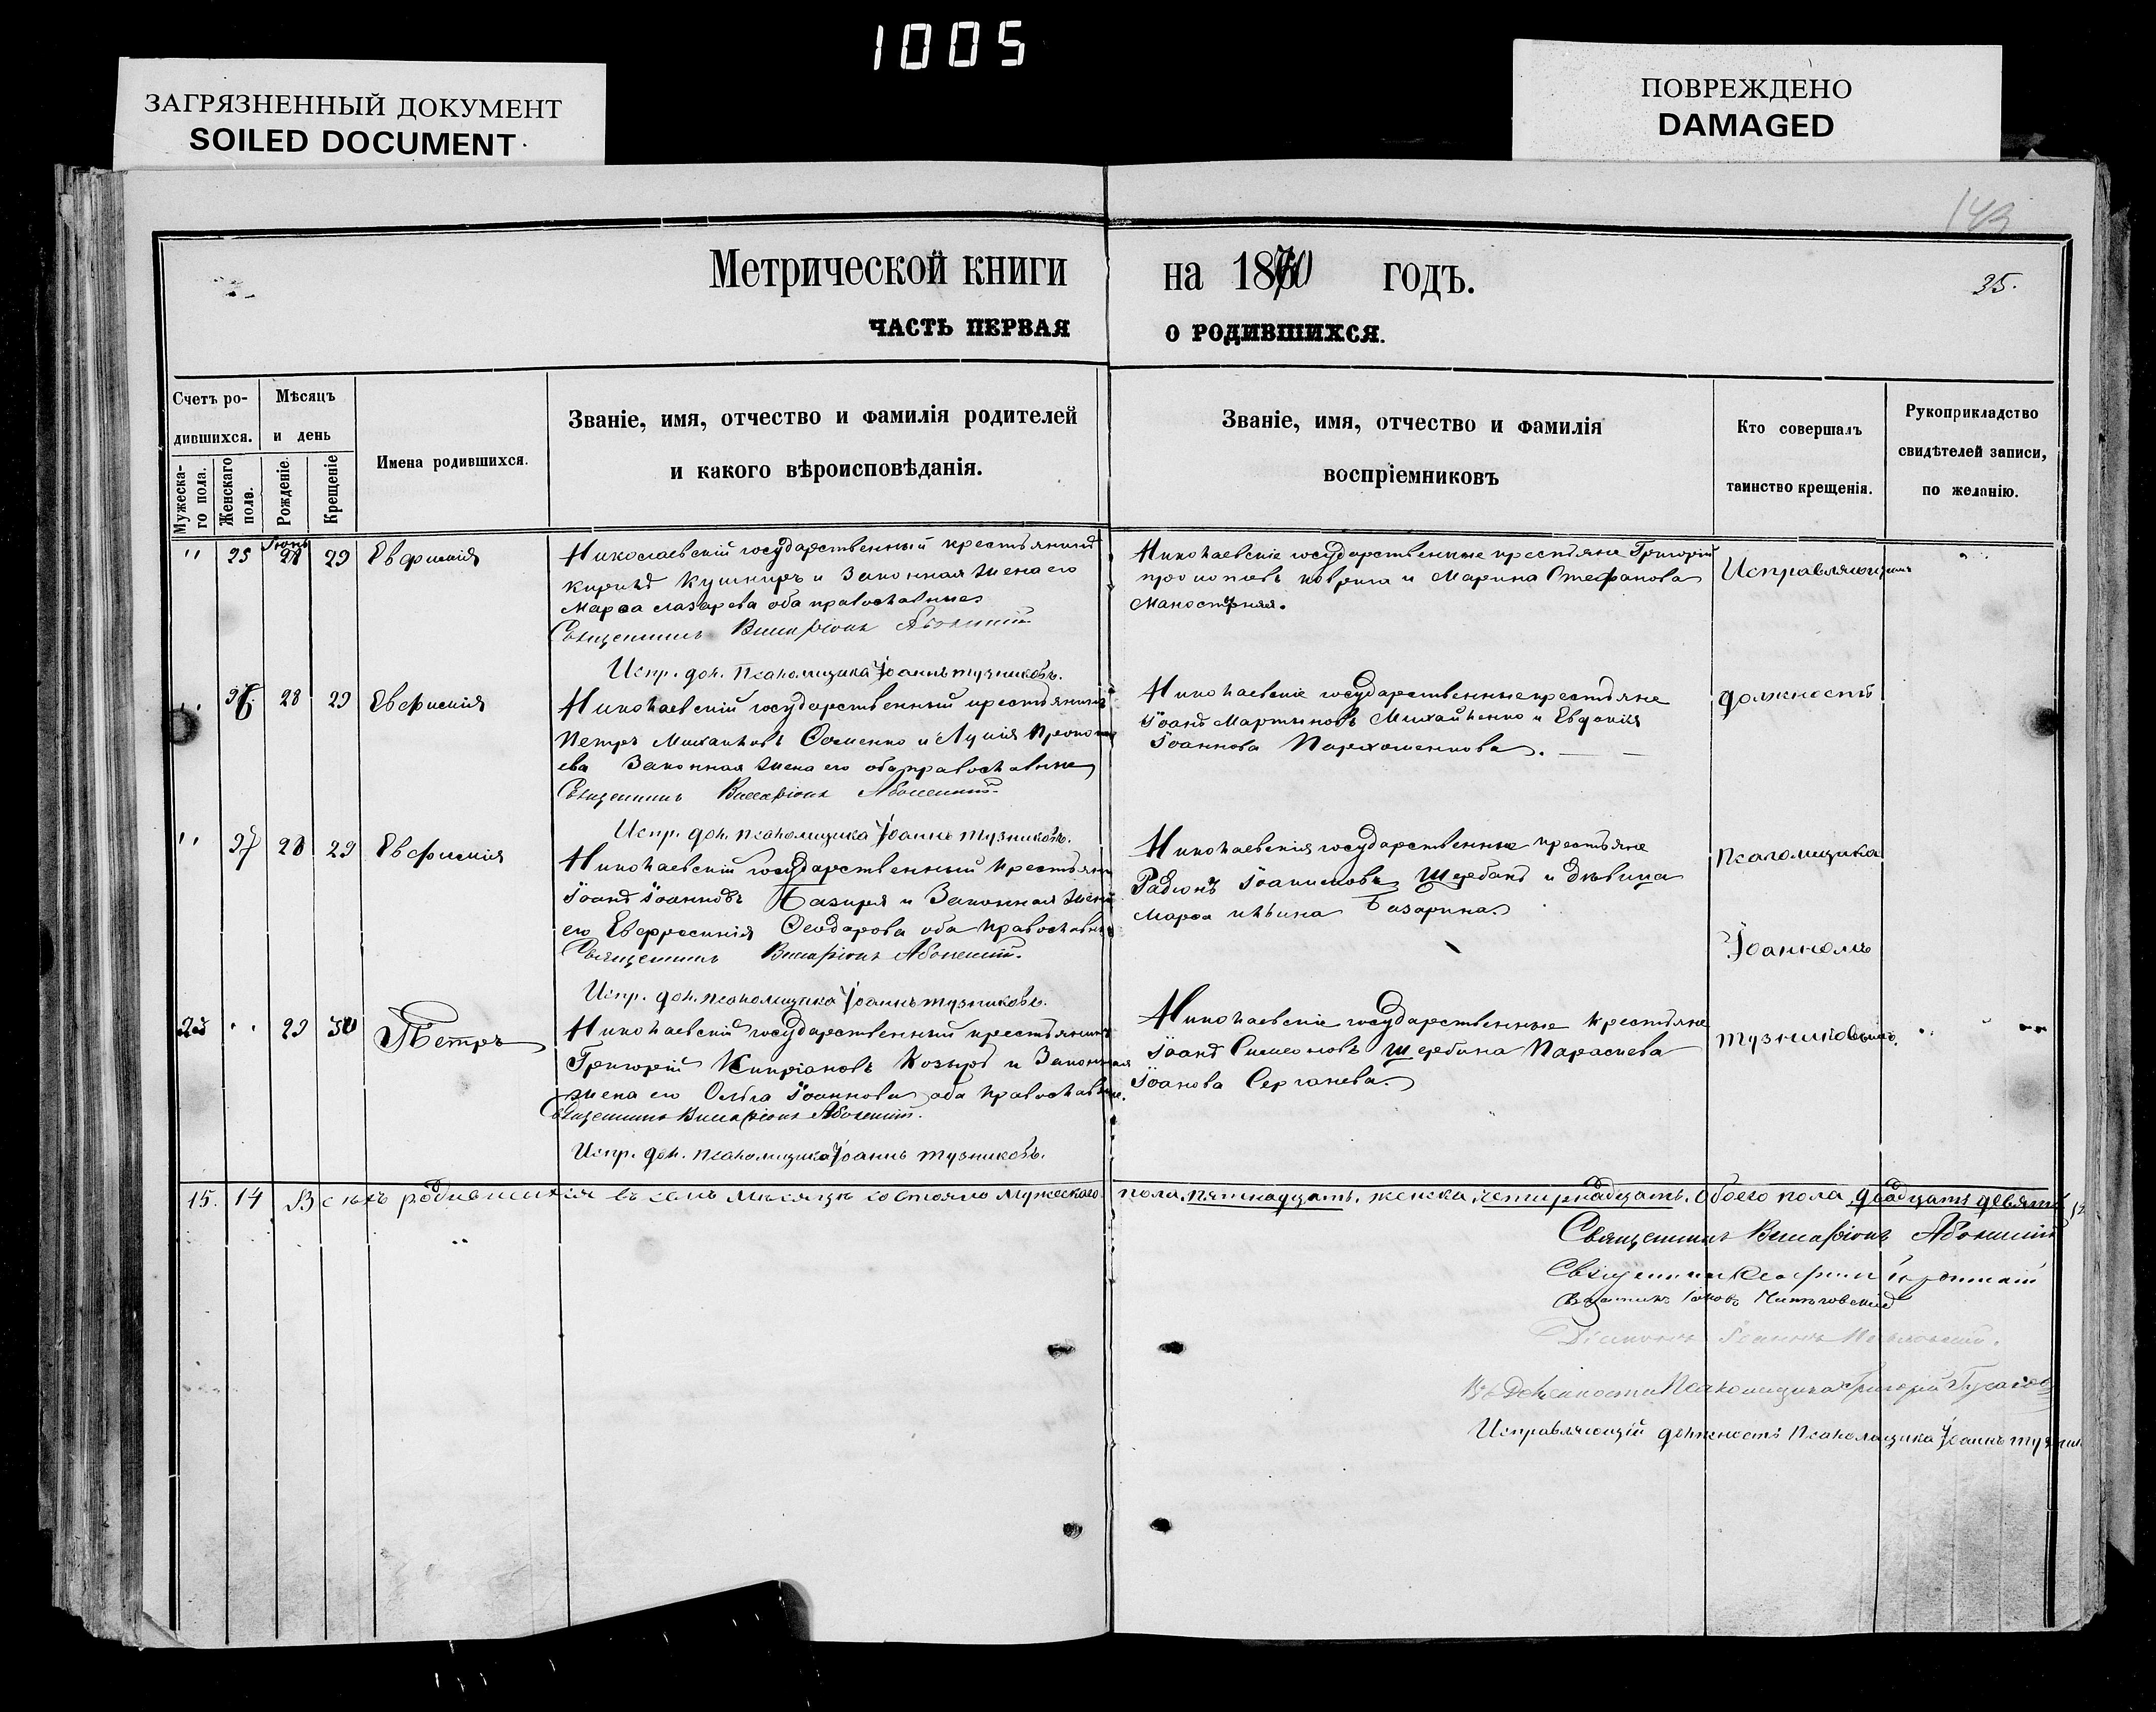 1005
ЗАГРЯЗНЕННЫЙ ДОКУМЕНТ
SOILED DOCUMENT
ПОВРЕЖДЕНО
DAMAGED
143
Метрической книги на 1870 годъ.
35.
ЧАСТЬ ПЕРВАЯ О РОДИВШИХСЯ.
Счетъ ро-
дившихся.
Мужеска-
го пола.
Женскаго
пола.
Мѣсяцъ
и день
Рожденіе.
Крещеніе
Имена родившихся.
Званіе, имя, отчество и фамилія родителей
и какого вѣроисповѣданія.
Званіе, имя, отчество и фамилія
воспріемниковъ
Кто совершалъ
таинство крещенія.
Рукоприкладство
свидѣтелей записи,
по желанію.
" 25 Іюнь 28 29 Евфимія
Николаевскій государственный крестьянинъ
Кирилъ Кушниръ и Законная жена его
Марѳа Лазарева оба православные
Священникъ Виссаріонъ
Испр. дол. псаломщика Іоаннъ Тузниковъ.
Николаевскіе государственные крестьяне Григорій
Коврига и Марина Стефанова
Исправляющимъ
" 26 28 29 Евфимія
Николаевскій государственный крестьянинъ
Петръ Михаиловъ Ѳоменко и Лукія
Законная жена его оба православные
Священникъ Виссаріонъ
Испр. дол. псаломщика Іоаннъ Тузниковъ.
Николаевскіе государственные крестьяне
Іоанъ Мартыновъ Михайленко и Евдокія
Іоаннова Пархоменкова.
должность
" 27 28 29 Евфимія
Николаевскій государственный крестьянинъ
Іоанъ Іоанновъ и Законная жена
его Евфросинія Ѳеодорова оба православные
Священникъ Виссаріонъ
Испр. дол. псаломщика Іоаннъ Тузниковъ.
Николаевскія государственные крестьяне
Радіонъ Щербакъ и дѣвица
Марѳа Базарина.
псаломщика
Іоанномъ
" " 29 30 Петръ
Николаевскій государственный крестьянинъ
Григорій Кипріановъ Козырь и Законная
жена его Ольга Іоаннова оба православные.
Священникъ Виссаріонъ
Испр. дол. псаломщика Іоаннъ Тузниковъ.
Николаевскіе государственные крестьяне
Іоанъ Симеоновъ Щербина Параскева
Іоанова
Тузниковымъ.
15. 14 Всѣхъ родившихся въ семъ Мѣсяцѣ состояло мужескаго пола, пятнадцать, женска, четырнадцать. Обоего пола двадцать девять
Священникъ Виссаріонъ
Священникъ
Іаковъ
Діаконъ Іоаннъ
Псаломщика Григорій
Исправляющій должность Псаломщика Іоаннъ